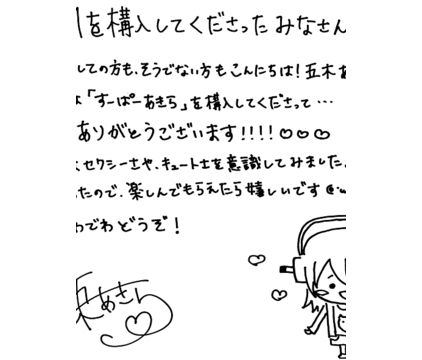 を構入してくださったみなさん
しての方も、そうでない方もこんにちは！五木あ
「すーぱーあきら」を構入してくださって…
ありがとうございます！！！！♡♡♡
、セクシーさや、キュートさを意識してみました。
たので、楽しんでもらえたら嬉しいです
わでわどうぞ！
あきら